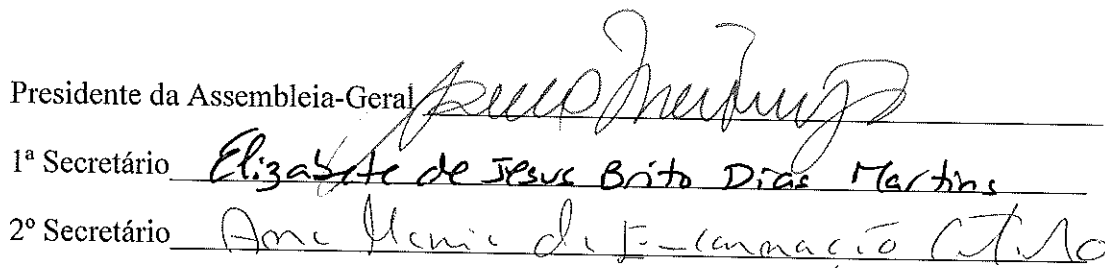 Presidente da Assembleia-Geral
1ª Secretário Elizabete de Jesus Brito Dias Martins
2º Secretário Ana Maria da Encarnação